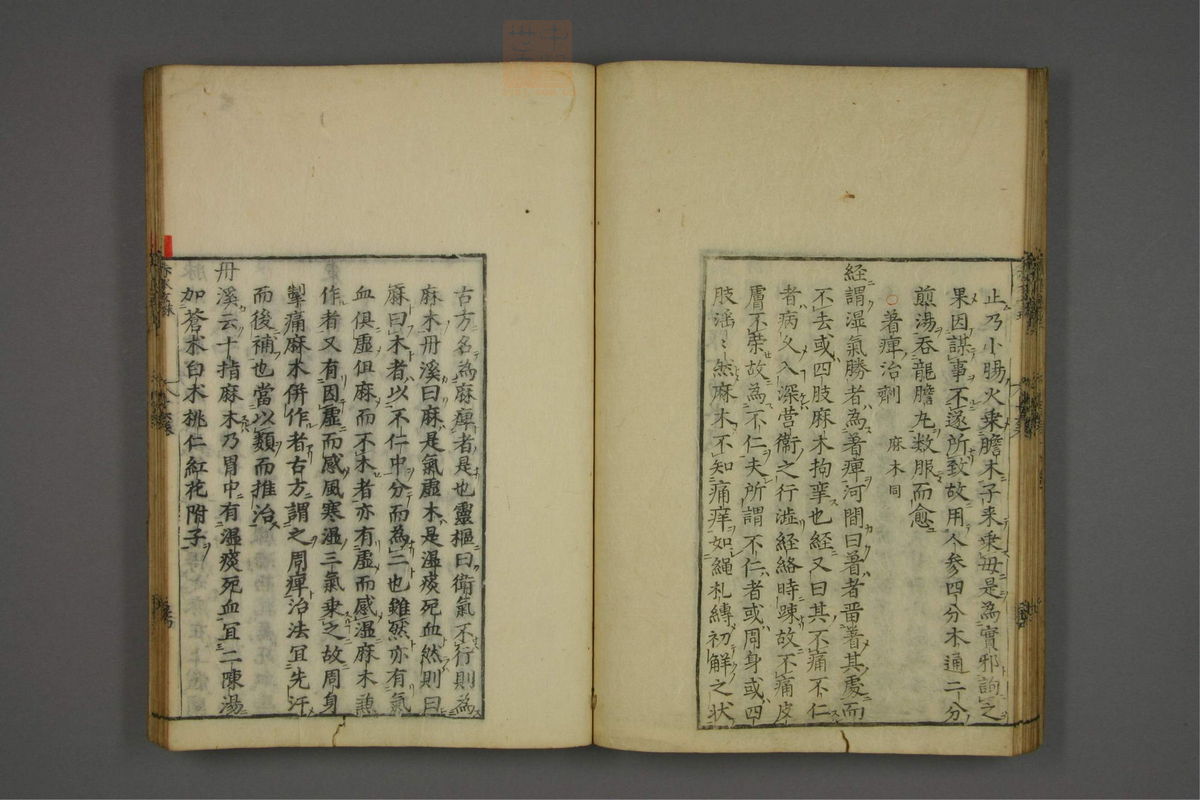 止乃小腸火乗膽木子来乗母是為實邪詢之
果因謀事不遂所致故用人参四分木通二分
煎湯呑龍膽丸数服而愈
○著痺治劑 麻木同
経謂湿氣勝者為著痺河間曰著者畱著其處而
不去或四肢麻木拘挛也経又曰其不痛不仁
者病久入深営衛之行澁経絡時踈故不痛皮
膚不栄故為不仁夫所謂不仁者或周身或四
肢滛〻然麻木不知痛痒如縄札縛初解之状
古方名為麻痺者是也靈樞曰衛氣不行則為
麻木丹溪曰麻是氣虚木是湿痰死血然則曰
麻曰木者以不仁中分而為二也雖然亦有氣
血倶虚但麻而不木者亦有虚而感湿麻木兼
作者又有因虚而感風寒湿三氣乗之故周身
掣痛麻木併作者古方謂之周痺治法宜先汗
而後補也當以類而推治
丹溪云十指麻木乃胃中有湿痰死血宜二陳湯
加蒼朮白朮桃仁紅花附子